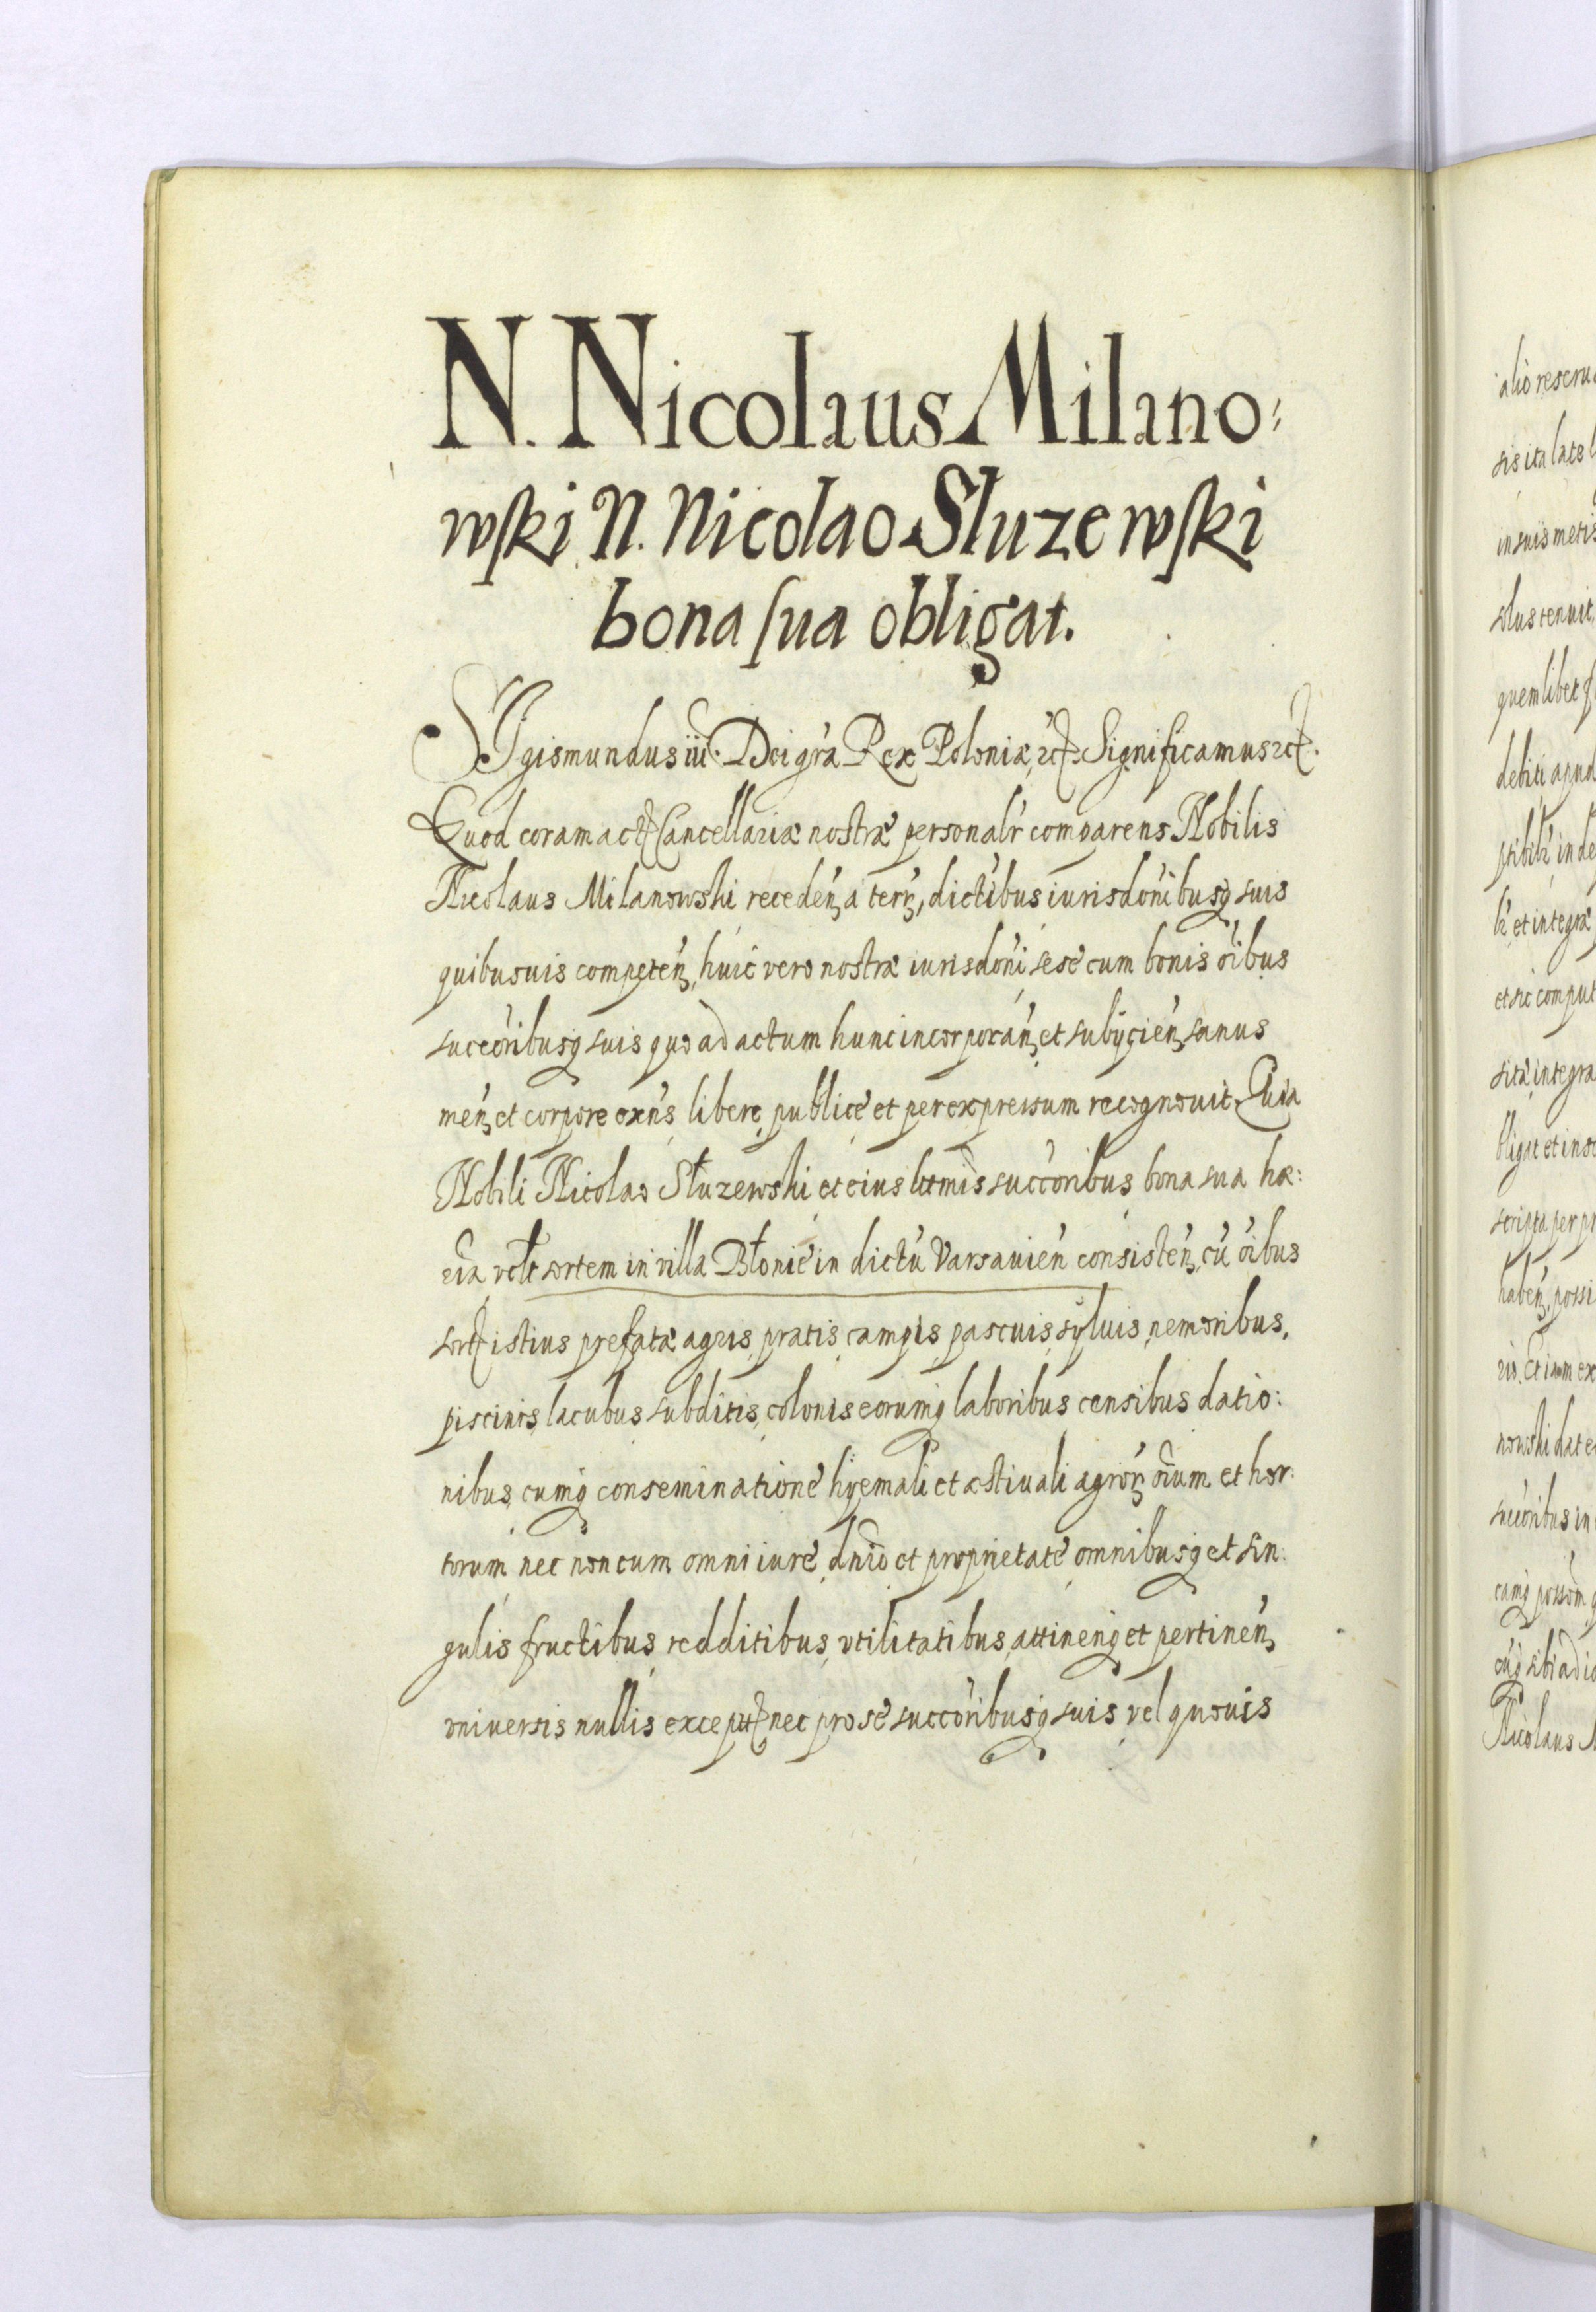 N. Nicolaus Milano:
wſki N. Nicolao Sluzewſki
bona ſua obligat.
Sigismundus iii. Dei gr̃a Rex Poloniæ, etc. Significamus etc.
Quod coram act. Cancellariæ nostræ personalr̃ comparens Nobilis
Nicolaus Milanowski receden̄ a terr̄, dictibus iurisdon̄ibusq suis
quibusuis competen̄, huic vero nostræ iurisdon̄i sese cum bonis oībus
succōribusq suis quo ad actum hunc incorporan̄ et subÿcien̄ sanus
men̄ et corpore exn̄s libere publice et per expressum recognouit. Quia
Nobili Nicolao Słuzewski et eius lttmis succōribus bona sua hæ:
ria vdlt sortem in villa Błonie in dictu Varsauien̄ consisten̄, cū oībus
sort istius prefatæ agris pratis campis pascuis, syluis, nemoribus,
piscinis, lacubus subditis, colonis eorumq laboribus censibus datio:
nibus, cumq conseminatione hyemali et æstiuali agror̄ oium et hor:
torum nec non cum omni iure, dn̄io et proprietate omnibusq et sin:
gulis fructibus, redditibus, vtilitatibus, attinenq et pertinen̄
vniuersis nullis except nec pro se succōribusq suis vel quouis
alio reseru
sis ita late l
in suis metis
solus tenuit,
quemlibet
debiti apud
et integræ
et sic comput
sita, integra
bligat et
scripta per
haben̄ possi
rio. Et iam ex
nowski dat e
succōribus in
sibi ad
Nicolaus M